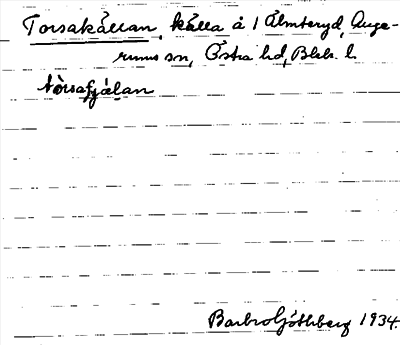 Torsakällan, källa å 1 Älmteryd, Auge-
rums sn, Östra hd, Blek. l.
tòrsafjælan
Barbro Göthberg 1934.